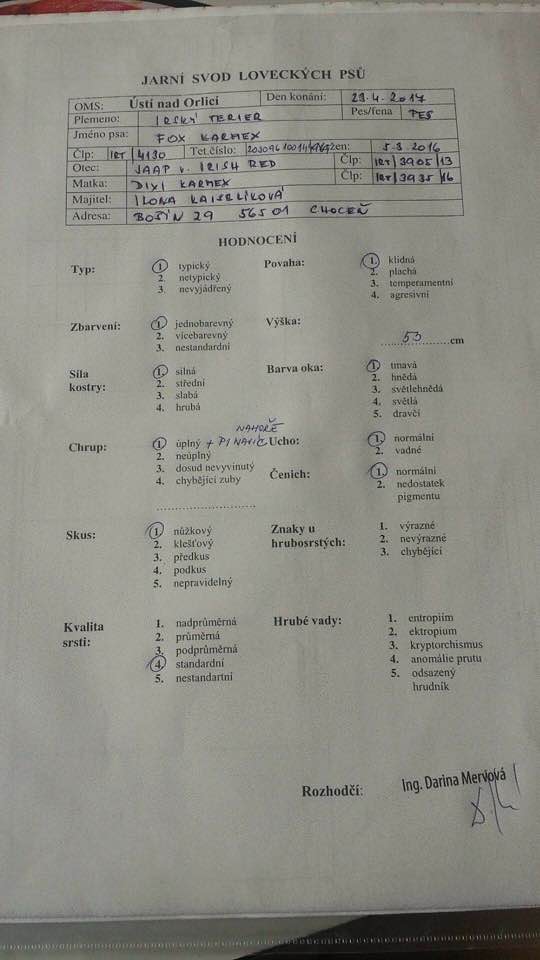 JARNÍ SVOD LOVECKÝCH PSŮ
OMS: Ústí nad Orlicí Den konání: 29.4.2017
Plemeno: IRSKÝ TERIER Pes/fena PES
Jméno psa: FOX KARMEX
Člp: IRT 4130 Tet.číslo: 5.3.2016
Otec: JAAP v. IRISH RED Člp: IRT 3905 13
Matka: DIXI KARMEX Člp: IRT 3935 16
Majitel: ILONA KAISRLÍKOVÁ
Adresa: BOŠÍN 29 56501 CHOCEŇ
HODNOCENÍ
Typ:
1. typický
2. netypický
3. nevyjádřený
Povaha:
1. klidná
2. plachá
3. temperamentní
4. agresivní
Zbarvení:
1. jednobarevný
2. vícebarevný
3. nestandardní
Výška:
53 cm
Síla kostry:
1. silná
2. střední
3. slabá
4. hrubá
Barva oka:
1. tmavá
2. hnědá
3. světlehnědá
4. světlá
5. dravčí
Chrup:
1. úplný + P1 NAVÍC NAHOŘE
2. neúplný
3. dosud nevyvinutý
4. chybějící zuby
Ucho:
1. normální
2. vadné
Čenich:
1. normální
2. nedostatek
pigmentu
Skus:
1. nůžkový
2. klešťový
3. předkus
4. podkus
5. nepravidelný
Znaky u
hrubosrstých:
1. výrazné
2. nevýrazné
3. chybějící
Kvalita
srsti:
1. nadprůměrná
2. průměrná
3. podprůměrná
4. standardní
5. nestandartní
Hrubé vady:
1. entropiím
2. ektropium
3. kryptorchismus
4. anomálie prutu
5. odsazený
hrudník
Rozhodčí: Ing. Darina Mervová